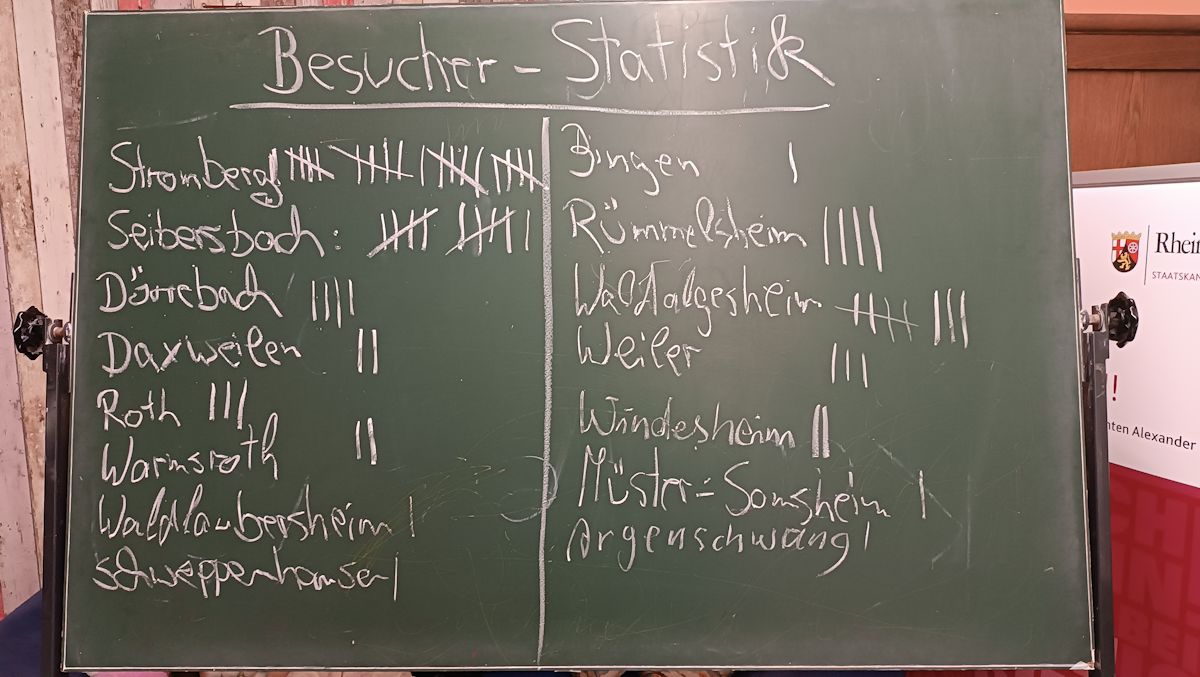 Besucher - Statistik
Stromberg |||| |||| |||| ||||
Seibersbach: |||| |||| |
Dörrebach ||||
Daxweilen ||
Roth |||
Warmsroth ||
Waldlaubersheim |
Schweppenhauser |
Bingen |
Rümmelsheim ||||
Waldalgesheim |||| |||
Weiler |||
Windesheim ||
Müster-Somsheim |
Argenschwang |
Rhein
STAATSKAN
!
nten Alexander